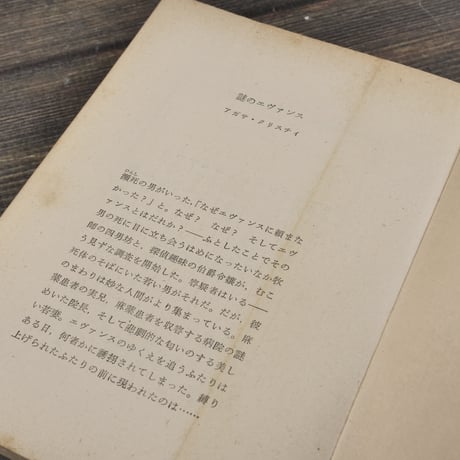 謎のエヴァンス
アガサ・クリスティ
瀕死の男がいった、「なぜエヴァンスに頼まな
かった?」と。なぜ? なぜ? そしてエヴ
ァンスとはだれか?――ふとしたことでその
男の死に目に立ち会うはめになったいなか牧
師の四男坊と、探偵趣味の伯爵令嬢が、むこ
う見ずな調査を開始した。容疑者はいる――
死体のそばにいた若い男がそれだ。だが、彼
のまわりは妙な人間がより集まっている。麻
薬患者の実兄、麻薬患者を収容する病院の謎
めいた院長、そして悲劇的な匂いのする美し
い若妻。エヴァンスのゆくえを追うふたりは
ある日、何者かに誘拐されてしまった。縛り
上げられたふたりの前に現われたのは……